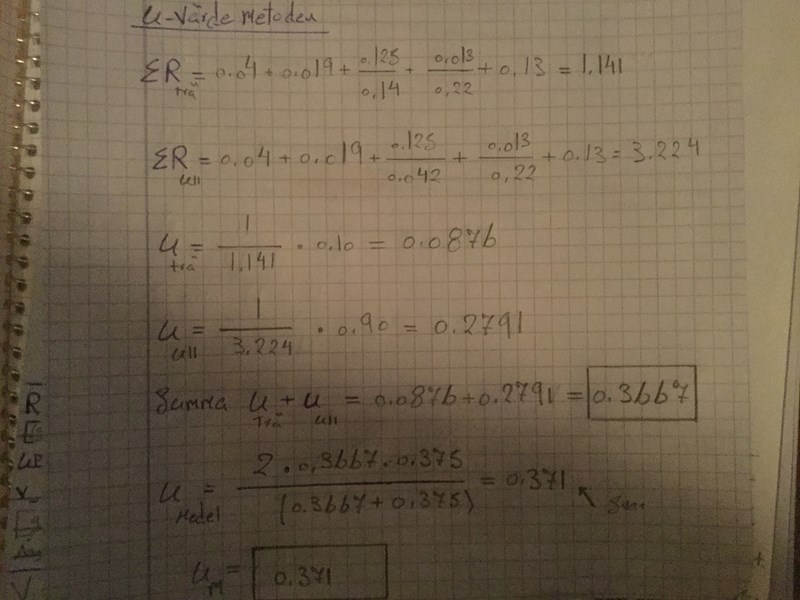 U-värde metoden
ΣR trä = 0.04 + 0.019 + 0.125/0.14 + 0.013/0,22 + 0,13 = 1.141
ΣR ull = 0.04 + 0.019 + 0.125/0.042 + 0.013/0,22 + 0.13 = 3.224
U trä = 1/1.141 · 0.10 = 0.0876
U ull = 1/3.224 · 0.90 = 0.2791
Summa U trä + U ull = 0.0876 + 0.2791 = 0.3667
U medel = 2 · 0,3667 · 0.375/(0.3667 + 0.375) = 0.371
U M = 0.371
R
V